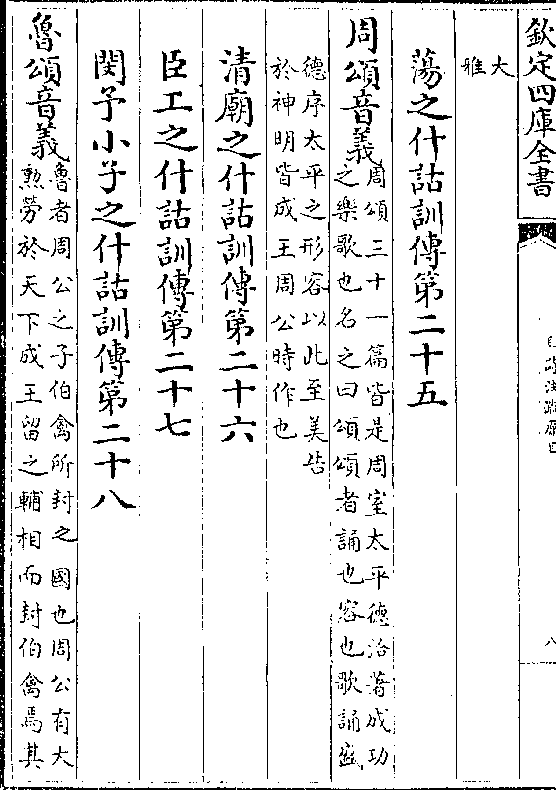 欽定四庫全書
八
大
雅
蕩之什詁訓傳第二十五
周頌音義
周頌三十一篇皆是周室太平德洽著成功
之樂歌也名之曰頌頌者誦也容也歌誦盛
德序太平之形容以此至美告
於神明皆成王周公時作也
清廟之什詁訓傳第二十六
臣工之什詁訓傳第二十七
閔予小子之什詁訓傳第二十八
魯頌音義
魯者周公之子伯禽所封之國也周公有大
勲勞於天下成王留之輔相而封伯禽焉其